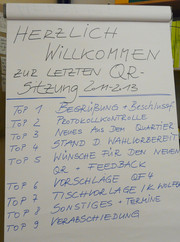 HERZLICH
WILLKOMMEN
ZUR LETZTEN QR-
SITZUNG 2011-2013
TOP 1 BEGRÜßUNG + Beschlussf
TOP 2 PROTOKOLLKONTROLLE
TOP 3 NEUES AUS DEM QUARTIER
TOP 4 STAND D WAHLVORBEREIT
TOP 5 WÜNSCHE FÜR DEN NEUEN
QR + FEEDBACK
TOP 6 VORSCHLÄGE QF4
TOP 7 TISCHVORLAGE
TOP 8 SONSTIGES + TERMINE
TOP 9 VERABSCHIEDUNG